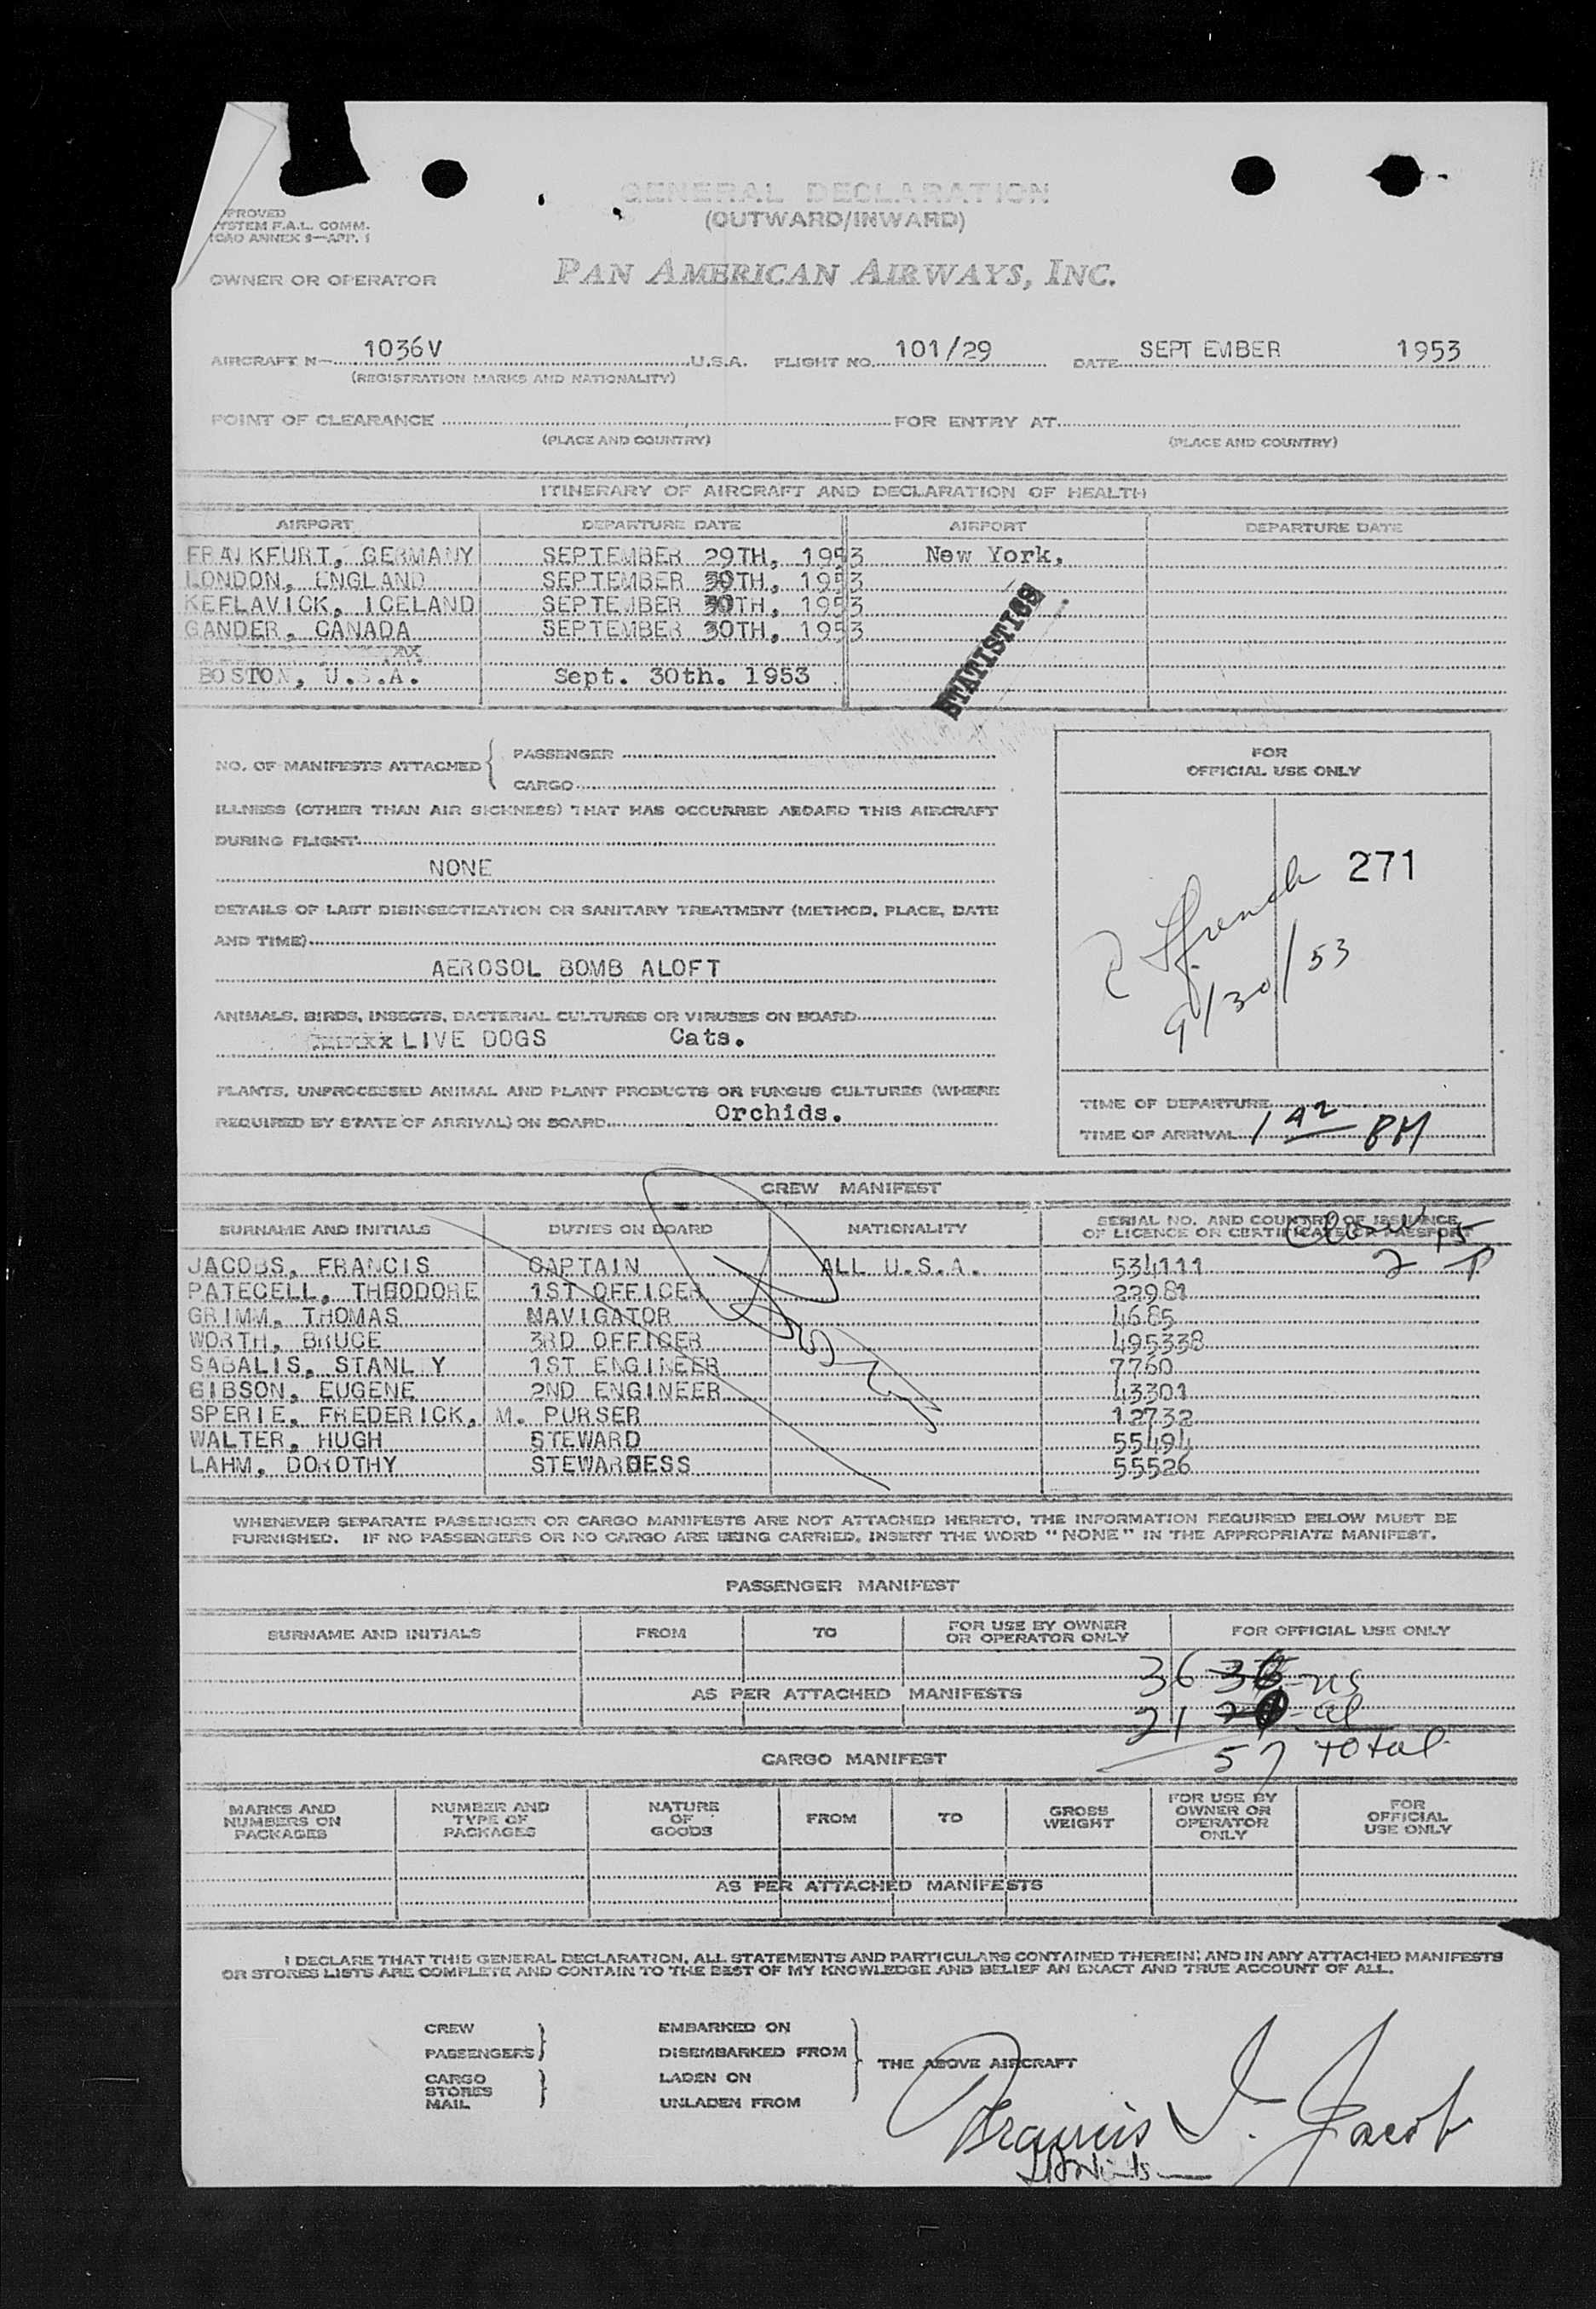 GENERAL DECLARATION
(OUTWARD/INWARD)
PROVED
YSTEM F.A.L. COMM.
ICAO ANNEX 9—APP. 1
OWNER OR OPERATOR PAN AMERICAN AIRWAYS, INC.
AIRCRAFT N— 1036V U.S.A. FLIGHT NO. 101/29 DATE SEPT EMBER 1953
(REGISTRATION MARKS AND NATIONALITY)
POINT OF CLEARANCE FOR ENTRY AT
(PLACE AND COUNTRY) (PLACE AND COUNTRY)
ITINERARY OF AIRCRAFT AND DECLARATION OF HEALTH
AIRPORT DEPARTURE DATE AIRPORT DEPARTURE DATE
FRANKFURT, GERMANY SEPTEMBER 29TH, 1953 New York,
LONDON, ENGLAND SEPTEMBER 30TH, 1953
KEFLAVICK, ICELAND SEPTEMBER 30TH, 1953
GANDER, CANADA SEPTEMBER 30TH, 1953
BOSTON, U.S.A. Sept. 30th. 1953
STATISTICS
NO. OF MANIFESTS ATTACHED { PASSENGER
CARGO
ILLNESS (OTHER THAN AIR SICKNESS) THAT HAS OCCURRED ABOARD THIS AIRCRAFT
DURING FLIGHT
NONE
DETAILS OF LAST DISINSECTIZATION OR SANITARY TREATMENT (METHOD, PLACE, DATE
AND TIME)
AEROSOL BOMB ALOFT
ANIMALS, BIRDS, INSECTS, BACTERIAL CULTURES OR VIRUSES ON BOARD
LIVE DOGS Cats.
PLANTS, UNPROCESSED ANIMAL AND PLANT PRODUCTS OR FUNGUS CULTURES (WHERE
REQUIRED BY STATE OF ARRIVAL) ON BOARD Orchids.
FOR
OFFICIAL USE ONLY
271
9/30/53
TIME OF DEPARTURE
TIME OF ARRIVAL 1 42 PM
CREW MANIFEST
SURNAME AND INITIALS DUTIES ON BOARD NATIONALITY SERIAL NO. AND COUNTRY OF ISSUANCE
OF LICENCE OR CERTIFICATE OR PASSPORT
JACOBS, FRANCIS CAPTAIN ALL U.S.A. 534111
PATECELL, THEODORE 1ST OFFICER 22981
GRIMM, THOMAS NAVIGATOR 4685
WORTH, BRUCE 3RD OFFICER 495338
SABALIS, STANL Y 1ST ENGINEER 7760
GIBSON, EUGENE 2ND ENGINEER 43301
SPERIE, FREDERICK, M. PURSER 12732
WALTER, HUGH STEWARD 55494
LAHM, DOROTHY STEWARDESS 55526
WHENEVER SEPARATE PASSENGER OR CARGO MANIFESTS ARE NOT ATTACHED HERETO, THE INFORMATION REQUIRED BELOW MUST BE
FURNISHED. IF NO PASSENGERS OR NO CARGO ARE BEING CARRIED, INSERT THE WORD "NONE" IN THE APPROPRIATE MANIFEST.
PASSENGER MANIFEST
SURNAME AND INITIALS FROM TO FOR USE BY OWNER
OR OPERATOR ONLY FOR OFFICIAL USE ONLY
36 36 us
AS PER ATTACHED MANIFESTS
21 al
57 total
CARGO MANIFEST
MARKS AND
NUMBERS ON
PACKAGES NUMBER AND
TYPE OF
PACKAGES NATURE
OF
GOODS FROM TO GROSS
WEIGHT FOR USE BY
OWNER OR
OPERATOR
ONLY FOR
OFFICIAL
USE ONLY
AS PER ATTACHED MANIFESTS
I DECLARE THAT THIS GENERAL DECLARATION, ALL STATEMENTS AND PARTICULARS CONTAINED THEREIN; AND IN ANY ATTACHED MANIFESTS
OR STORES LISTS ARE COMPLETE AND CONTAIN TO THE BEST OF MY KNOWLEDGE AND BELIEF AN EXACT AND TRUE ACCOUNT OF ALL.
CREW EMBARKED ON
PASSENGERS DISEMBARKED FROM THE ABOVE AIRCRAFT
CARGO LADEN ON
STORES
MAIL UNLADEN FROM
Francis J. Jacob